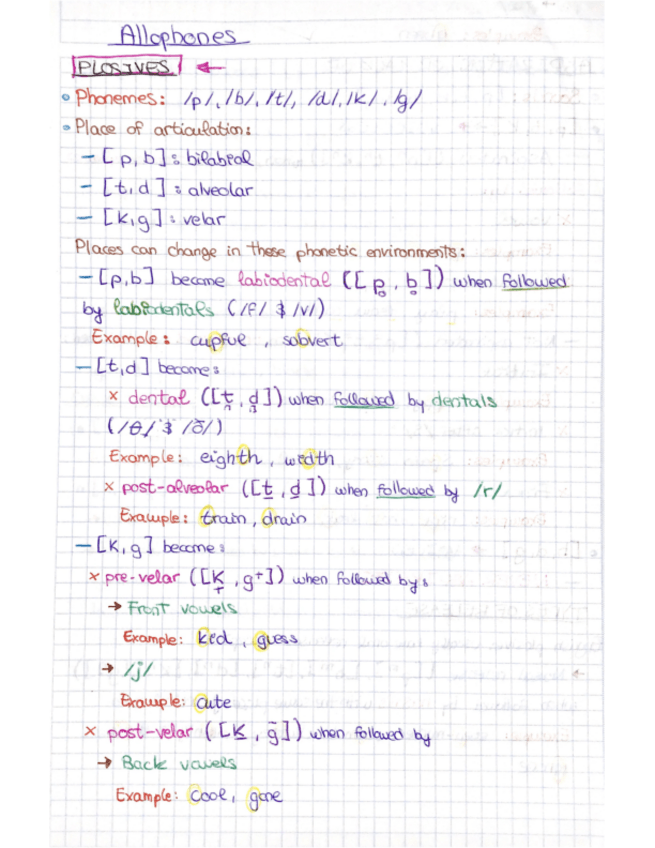 Allophones
PLOSIVES ←
• Phonemes: /p/, /b/, /t/, /d/, /k/, /g/
• Place of articulation:
– [p, b]: bilabial
– [t, d]: alveolar
– [k, g]: velar
Places can change in these phonetic environments:
– [p, b] become labiodental ([p̪, b̪]) when followed
by labiodentals (/f/ & /v/)
Example: cupful, subvert
– [t, d] become:
× dental ([t̪, d̪]) when followed by dentals
(/θ/ & /ð/)
Example: eighth, width
× post-alveolar ([t̠, d̠]) when followed by /r/
Example: train, drain
– [k, g] become:
× pre-velar ([k̟, g⁺]) when followed by:
→ Front vowels
Example: kid, guess
→ /j/
Example: cute
× post-velar ([k̠, ḡ]) when followed by
→ Back vowels
Example: cool, gone